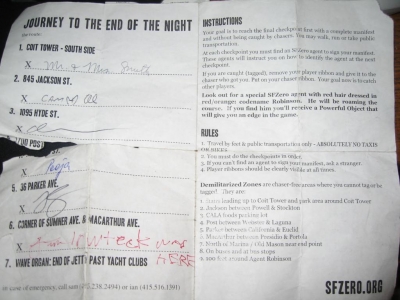 JOURNEY TO THE END OF THE NIGHT
1. COIT TOWER - SOUTH SIDE
X Mr & Mrs Smith
2. 845 JACKSON ST.
X
3. 1095 HYDE ST.
X
POST
X
5. 36 PARKER AVE.
X
6. CORNER OF SUMNER AVE. & MACARTHUR AVE.
X I wreck was HERE
7. WAVE ORGAN: END OF JETTY PAST YACHT CLUBS
In case of emergency, call Sam or Ian (415.516.1391)
INSTRUCTIONS
Your goal is to reach the final checkpoint first with a complete manifest
and without being caught by chasers. You may walk, run or take public
transportation.
At each checkpoint you must find an SFZero agent to sign your manifest.
These agents will instruct you on how to identify the agent at the next
checkpoint.
If you are caught (tagged), remove your player ribbon and give it to the
chaser who got you. Put on your chaser ribbon. Your goal now is to catch
other players.
Look out for a special SFZero agent with red hair dressed in
red/orange; codename Robinson. He will be roaming the
course. If you find him you'll receive a Powerful Object that
will give you an edge in the game.
RULES
1. Travel by feet & public transportation only - ABSOLUTELY NO TAXIS
OR BIKES
2. You must do the checkpoints in order.
3. If you can't find an agent to sign your manifest, ask a stranger.
4. Player ribbons should be clearly visible at all times.
Demilitarized Zones are chaser-free areas where you cannot be tagged (or
be tagged!). They are:
1. Stairs leading up to Coit Tower and park area around Coit Tower
2. Jackson between Powell & Stockton
3. CALA foods parking lot
4. Post between Webster & Laguna
5. Parker between California & Euclid
6. Macarthur between Presidio & Portola
7. North of Marina / Old Mason near end point
8. On buses and at bus stops
9. 100 feet around Agent Robinson
SFZERO.ORG